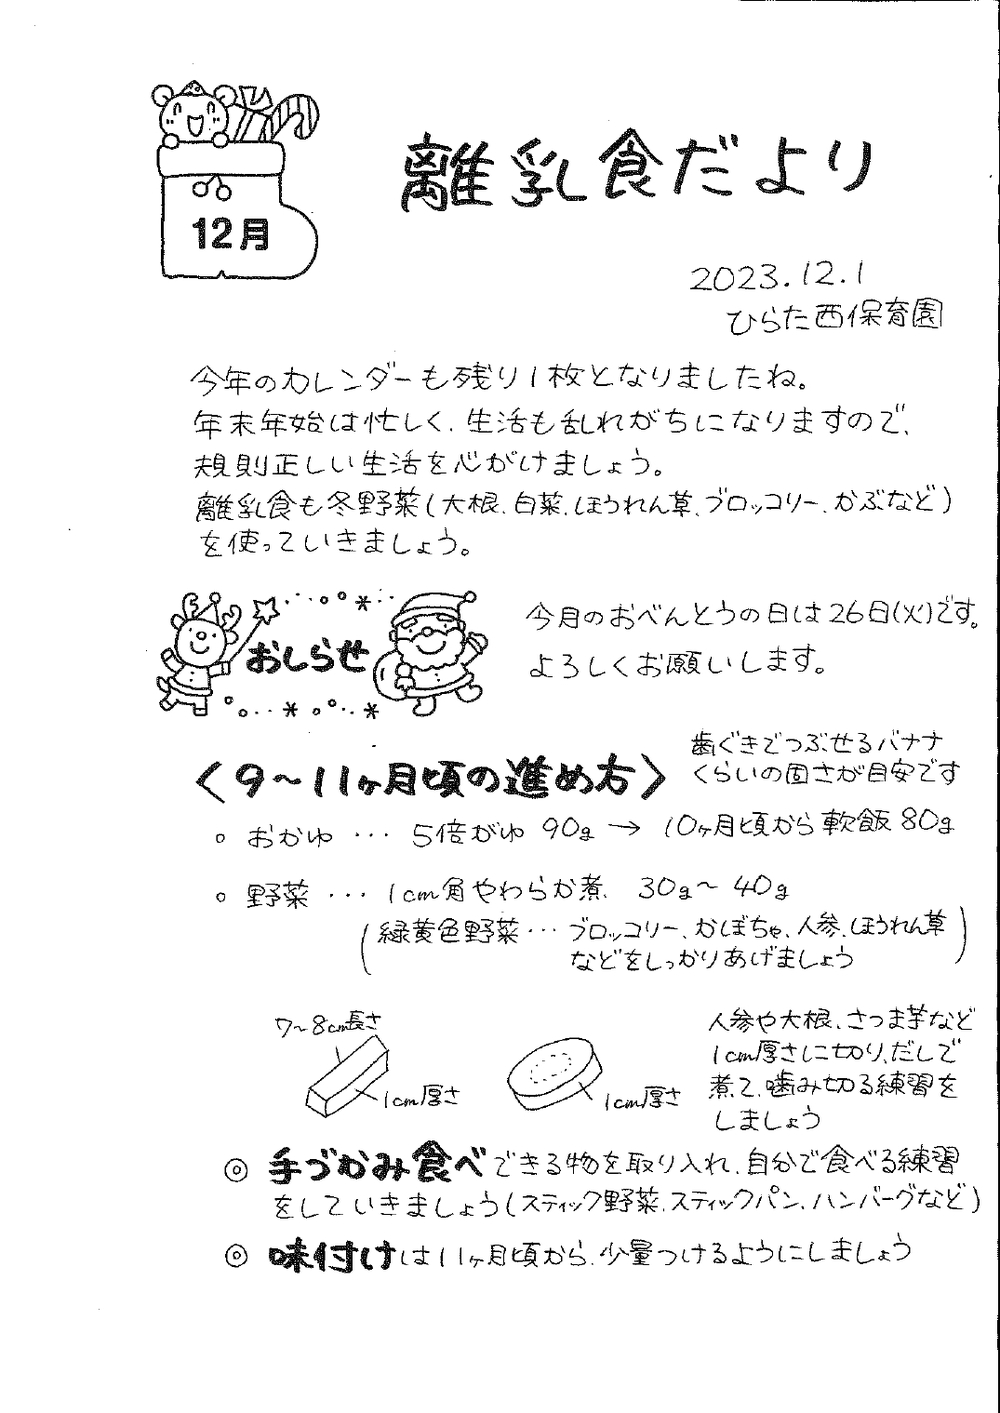 12月
離乳食だより
2023.12.1
ひらた西保育園
今年のカレンダーも残り1枚となりましたね。
年末年始は忙しく、生活も乱れがちになりますので、
規則正しい生活を心がけましょう。
離乳食も冬野菜(大根、白菜、ほうれん草、ブロッコリー、かぶなど)
を使っていきましょう。
おしらせ
今月のおべんとうの日は26日(火)です。
よろしくお願いします。
〈9~11ヶ月頃の進め方〉
歯ぐきでつぶせるバナナ
くらいの固さが目安です
。おかゆ … 5倍がゆ 90g → 10ヶ月頃から軟飯80g
。野菜 … 1cm角やわらか煮 30g~40g
(緑黄色野菜… ブロッコリー、かぼちゃ、人参、ほうれん草
などをしっかりあげましょう)
7~8cm長さ
1cm厚さ
1cm厚さ
人参や大根、さつま芋など
1cm厚さに切り、だしで
煮て、噛み切る練習を
しましょう
◎ 手づかみ食べできる物を取り入れ、自分で食べる練習
をしていきましょう(スティック野菜、スティックパン、ハンバーグなど)
◎ 味付けは11ヶ月頃から、少量つけるようにしましょう